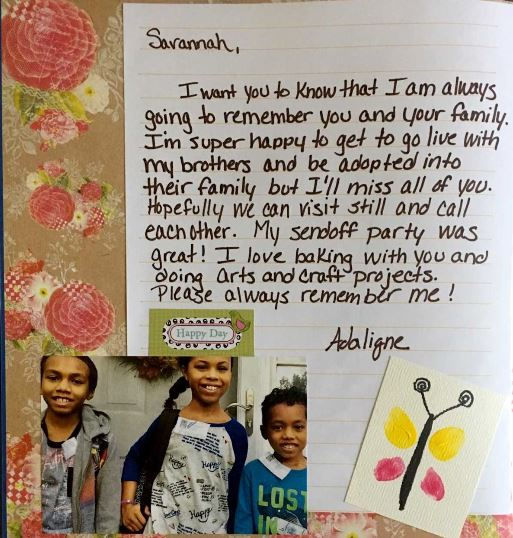 Savannah,
I want you to know that I am always
going to remember you and your family.
I'm super happy to get to go live with
my brothers and be adopted into
their family but I'll miss all of you.
Hopefully we can visit still and call
each other. My sendoff party was
great! I love baking with you and
doing arts and craft projects.
Please always remember me!
Adaligne
Happy Day
happy
Happy
LOST
IN